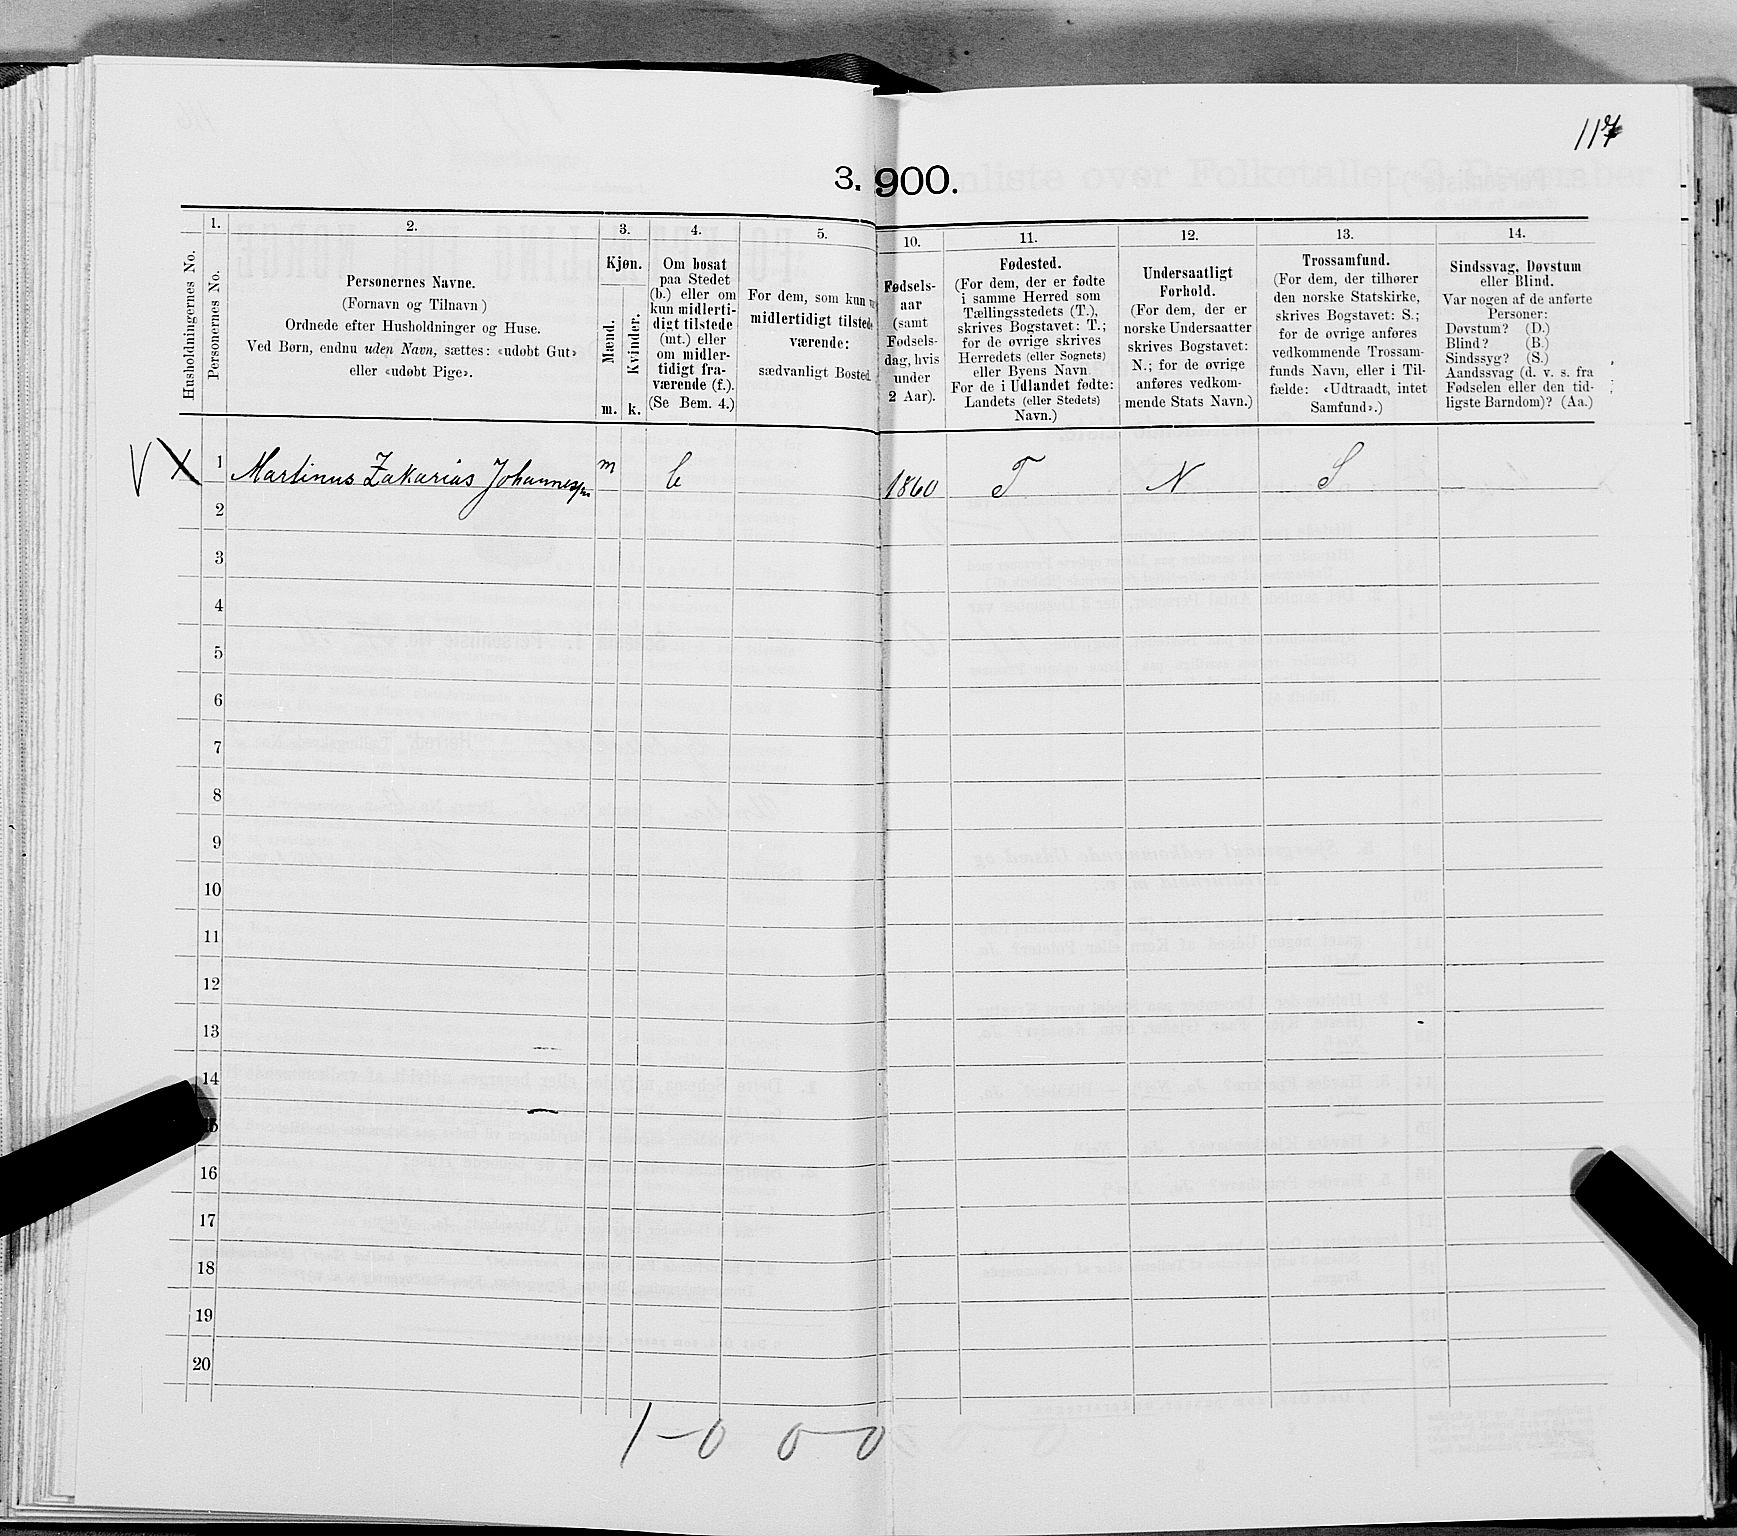 117
3. 900.
Husholdningernes No.
1.
Personernes No.
2.
Personernes Navne.
(Fornavn og Tilnavn)
Ordnede efter Husholdninger og Huse.
Ved Børn, endnu uden Navn, sættes: «udøbt Gut»
eller «udøbt Pige».
3.
Kjøn.
Mænd.
Kvinder.
m. k.
4.
Om bosat
paa Stedet
(b.) eller om
kun midlerti-
digt tilstede
(mt.) eller
om midler-
tidigt fra-
værende (f.).
(Se Bem. 4.)
5.
For dem, som kun
midlertidigt tilstede
værende:
sædvanligt Bosted.
10.
Fødsels-
aar
(samt
Fødsels-
dag, hvis
under
2 Aar).
11.
Fødested.
(For dem, der er fødte
i samme Herred som
Tællingsstedets (T.),
skrives Bogstavet: T.;
for de øvrige skrives
Herredets (eller Sognets)
eller Byens Navn
For de i Udlandet fødte:
Landets (eller Stedets)
Navn.)
12.
Undersaatligt
Forhold.
(For dem, der er
norske Undersaatter
skrives Bogstavet:
N.; for de øvrige
anføres vedkom-
mende Stats Navn.)
13.
Trossamfund.
(For dem, der tilhører
den norske Statskirke,
skrives Bogstavet: S.;
for de øvrige anføres
vedkommende Trossam-
funds Navn, eller i Til-
fælde: «Udtraadt, intet
Samfund».)
14.
Sindssvag, Døvstum
eller Blind.
Var nogen af de anførte
Personer:
Døvstum? (D.)
Blind? (B.)
Sindssyg? (S.)
Aandssvag (d. v. s. fra
Fødselen eller den tid-
ligste Barndom)? (Aa.)
V X 1 Martinus Zakarias Johannessen m b 1860 T N S
2
3
4
5
6
7
8
9
10
11
12
13
14
16
17
18
19
20
1-0 0-0